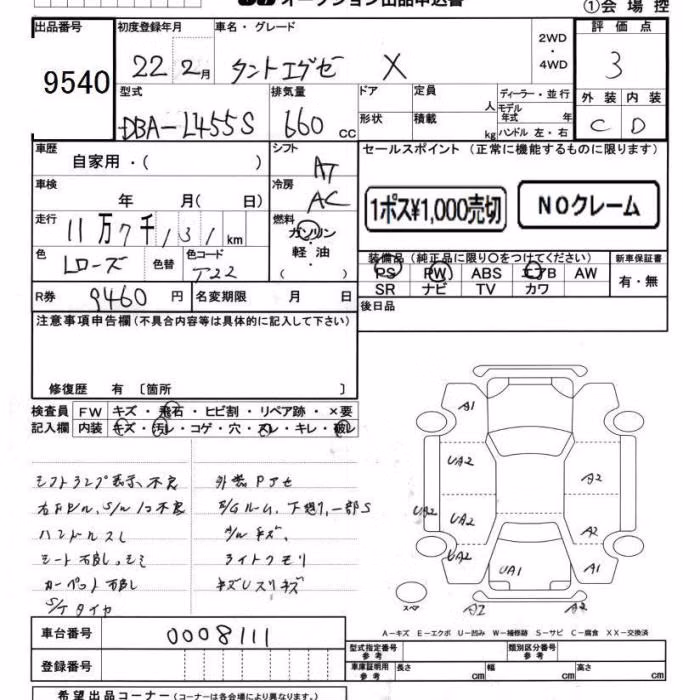 オークション出品申込書
①会場控
出品番号 初度登録年月 車名・グレード 2WD・4WD 評価点
9540 22 2月 タントエグゼ X 3
外装 内装
C D
型式 排気量 ドア 定員 人 ディーラー・並行
モデル年式 年
DBA-L455S 660 cc 形状 積載 kg ハンドル 左・右
車歴 自家用・( ) シフト AT セールスポイント (正常に機能するものに限ります)
車検 年 月( 日) 冷房 AC 1ポス¥1,000売切 NOクレーム
走行 11万7千131km 燃料 ガソリン・軽油・( )
色 Lローズ 色替 色コード T22
装備品 (純正品に限り○をつけてください) 新車保証書
PS PW ABS エアB AW 有・無
SR ナビ TV カワ
R券 9460円 名変期限 月 日 後日品
注意事項申告欄 (不具合内容等は具体的に記入して下さい)
修復歴 有 〔箇所 〕
検査員 FW キズ・飛石・ヒビ割・リペア跡・×要
記入欄 内装 キズ・汚レ・コゲ・穴・スレ・キレ・破レ
シフトランプ表示不良 外装Pアセ
E/Gルーム、下廻り、一部S
ハンドルスレ A/Wキズ、
ライトクモリ
S/Tタイヤ
A1
UA2 A2
UA2 UA2 A2
UA2 UA1 A1
スペア A2 A2
A-キズ E-エクボ U-凹み W-補修跡 S-サビ C-腐食 XX-交換済
車台番号 0008111
登録番号
型式指定番号 参考 類別区分番号 参考
車庫証明用 参考 長さ cm 幅 cm 高さ cm
希望出品コーナー (コーナーは各会場により異なります。)